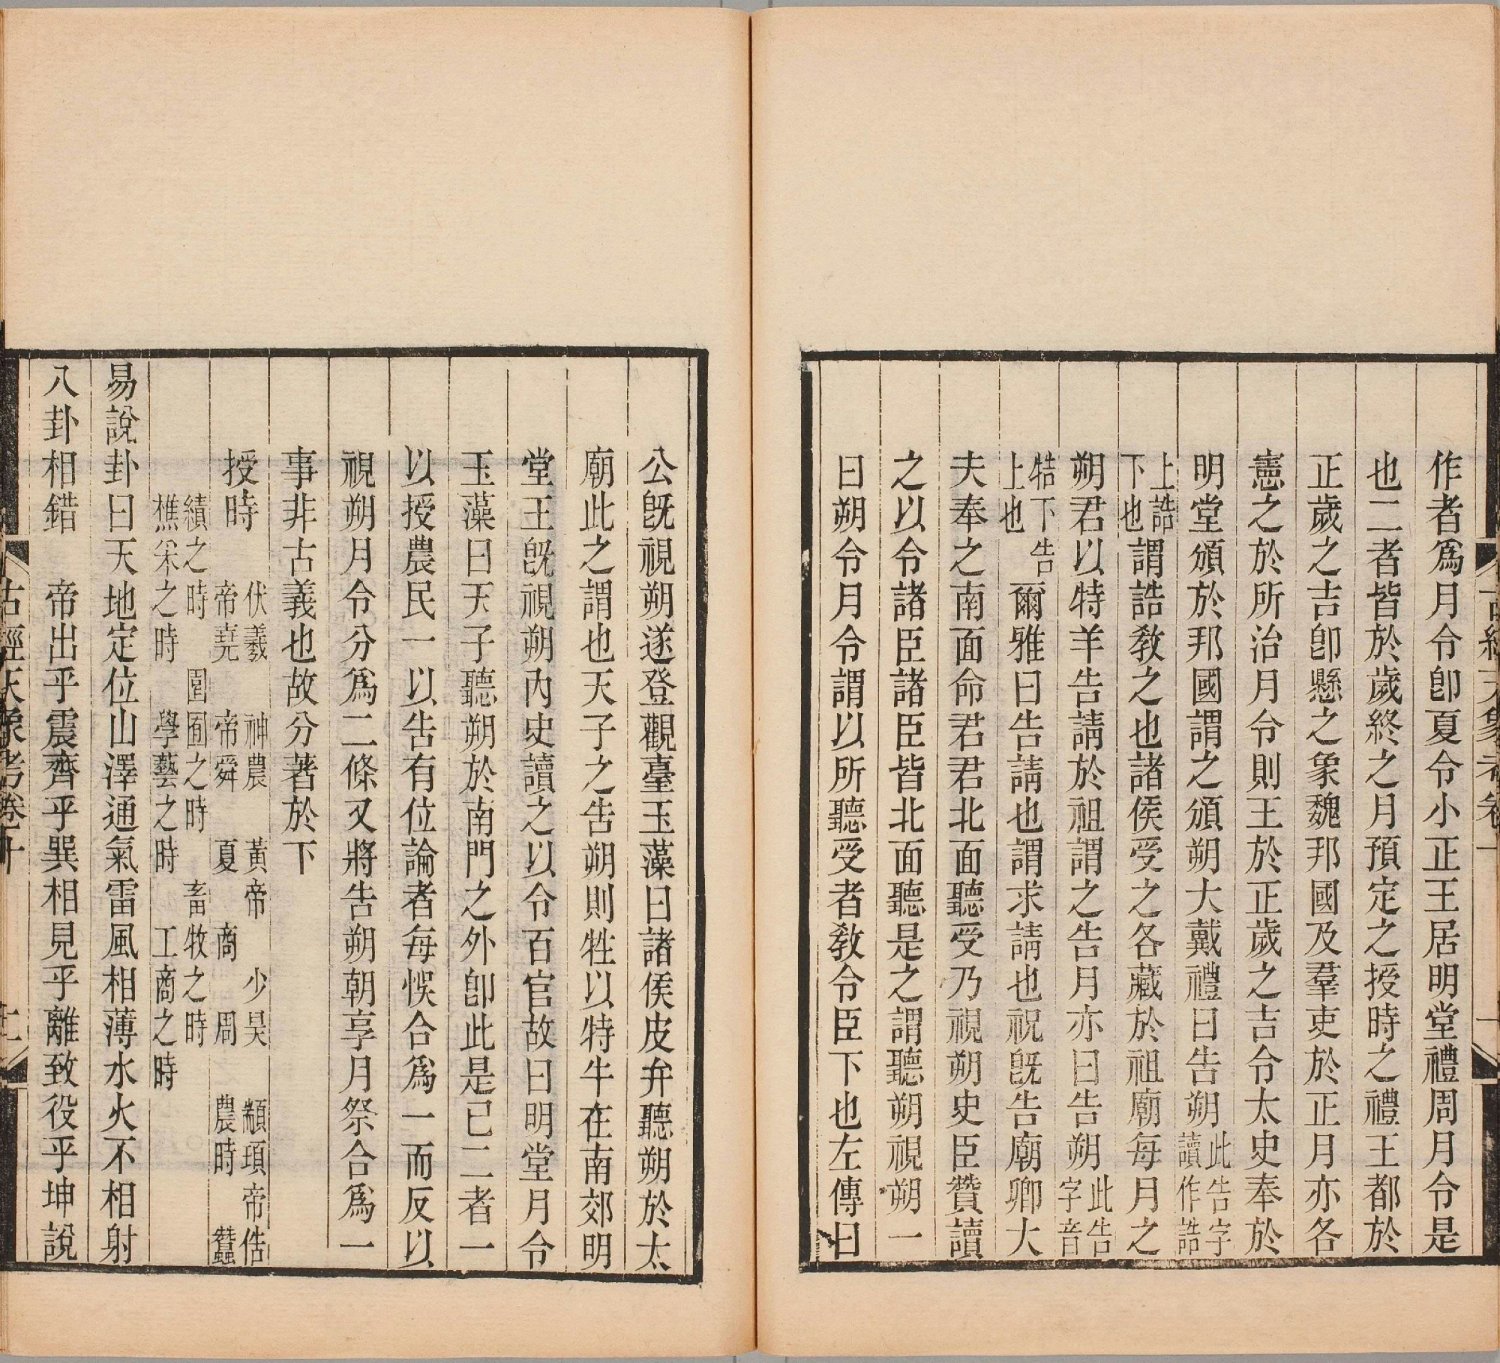 作者爲月令卽夏令小正王居明堂禮周月令是
也二者皆於歲終之月預定之授時之禮王都於
正歲之吉卽懸之象魏邦國及羣吏於正月亦各
憲之於所治月令則王於正歲之吉令太史奉於
明堂頒於邦國謂之頒朔大戴禮曰告朔此告字讀作誥
上誥下也謂誥敎之也諸侯受之各藏於祖廟每月之
朔君以特羊告請於祖謂之告月亦曰告朔此告字音
牿下告上也爾雅曰告請也謂求請也祝旣告廟卿大
夫奉之南面命君君北面聽受乃視朔史臣贊讀
之以令諸臣諸臣皆北面聽是之謂聽朔視朔一
曰朔令月令謂以所聽受者敎令臣下也左傳曰
公旣視朔遂登觀臺玉藻曰諸侯皮弁聽朔於太
廟此之謂也天子之告朔則牲以特牛在南郊明
堂王旣視朔內史讀之以令百官故曰明堂月令
玉藻曰天子聽朔於南門之外卽此是已二者一
以授農民一以告有位論者每悞合爲一而反以
視朔月令分爲二條又將告朔朝享月祭合爲一
事非古義也故分著於下
授時 伏羲 神農 黃帝 少昊 顓頊帝俈
帝堯 帝舜 夏 商 周 農時 蠶
績之時 園圃之時 畜牧之時
樵采之時 學藝之時 工商之時
易說卦曰天地定位山澤通氣雷風相薄水火不相射
八卦相錯 帝出乎震齊乎巽相見乎離致役乎坤說
古經天象考卷十 二